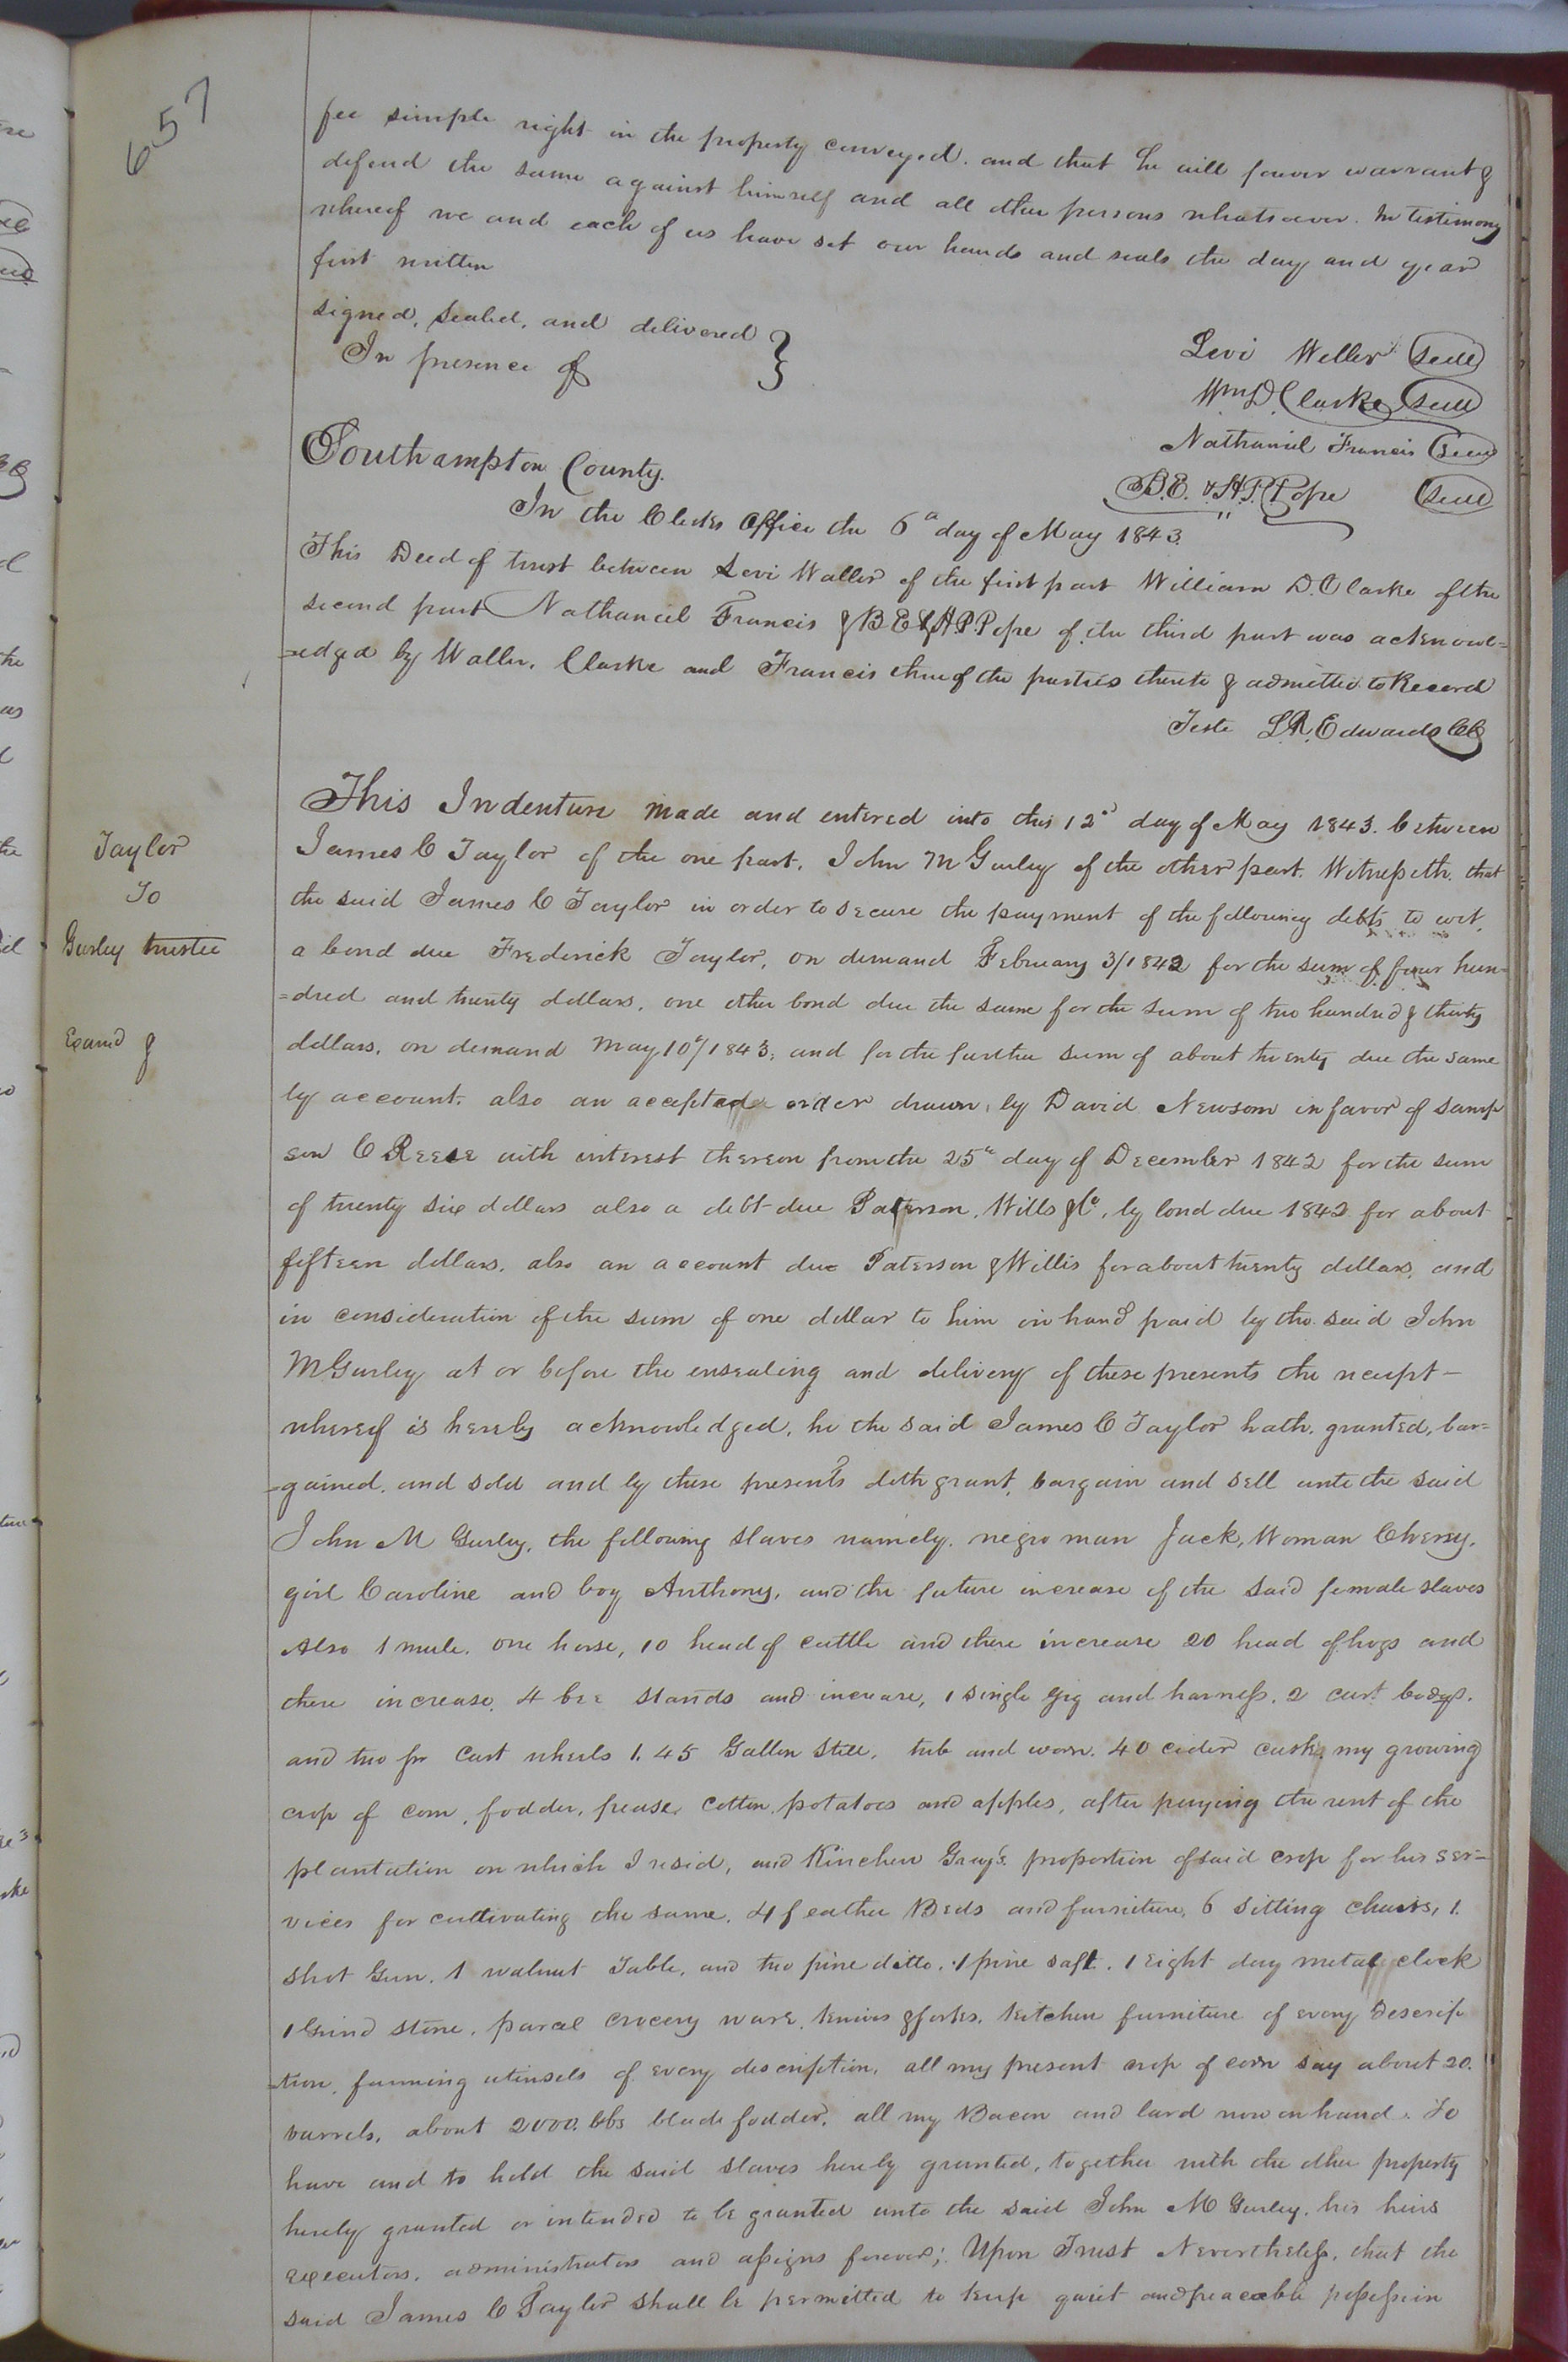 657
fee simple right in the property conveyed. and that he will forever warrant &
defend the same against himself and all other persons whatsoever. In testimony
whereof we and each of us have set our hands and seals the day and year
first written
signed, sealed, and delivered }
In presence of
Levi Waller Seal
Wm D. Clarke Seal
Nathaniel Francis Seal
B.E. & H.P. Pope Seal
Southampton County.
In the Clerks Office the 6th day of May 1843.
This Deed of trust between Levi Waller of the first part William D. Clarke of the
second part Nathaniel Francis & B E & H. P. Pope of the third part was acknowl=
=edged by Waller, Clarke and Francis three of the parties thereto & admitted to Record
Teste L.R. Edwards Clk
Taylor
To
Gurley trustee
Examd &
This Indenture made and entered into this 12th day of May 1843. between
James C Taylor of the one part, John M Gurley of the other part. Witnesseth. that
the said James C Taylor in order to secure the payment of the following debts to wit,
a bond due Frederick Taylor, on demand February 3/1842 for the sum of four hun=
=dred and twenty dollars, one other bond due the same for the sum of two hundred & thirty
dollars, on demand May 10th/1843; and for the further sum of about twenty due the same
by account. also an accepted order drawn by David Newsom in favor of Samp
son C Reese with interest thereon from the 25th day of December 1842 for the sum
of twenty six dollars also a debt due Paterson, Wills & Co, by bond due 1842 for about
fifteen dollars. also an account due Paterson & Willis for about twenty dollars, and
in consideration of the sum of one dollar to him in hand paid by the said John
M Gurley at or before the ensealing and delivery of these presents the receipt -
whereof is hereby acknowledged, he the said James C Taylor hath. granted, bar=
=gained. and sold and by these presents doth grant, bargain and sell unto the said
John M Gurley, the following slaves namely. negro man Jack, Woman Cherry,
girl Caroline and boy Anthony, and the future increase of the said female slaves
Also 1 mule. one horse, 10 head of cattle and there increase 20 head of hogs and
there increase, 4 bee stands and increase, 1 single gig and harness. 2 cart bodys.
and two pr cart wheels 1. 45 Gallon Still, tub and worm. 40 cider casks, my growing
crop of corn, fodder, pease, cotton, potatoes and apples, after paying the rent of the
plantation on which I resid, and Kinchen Gray's proportion of said crop for his ser=
vices for cultivating the same. 4 feather Beds and furniture, 6 sitting chairs, 1.
shot Gun. 1 walnut Table, and two pine ditto. 1 pine saft. 1 eight day metal clock
1 Grind stone. parcel crocery ware, knives & forks, kitchen furniture of every descrip
=tion, farming utensels of every description, all my present crop of corn say about 20.
barrels, about 2000. lbs blade fodder, all my Bacon and lard now on hand. To
have and to hold the said slaves hereby granted, together with the other property
hereby granted or intended to be granted unto the said John M Gurley, his heirs
executors, administrators and assigns forever; Upon Trust Nevertheless, that the
said James C Taylor shall be permitted to keep quiet and peaceable possession